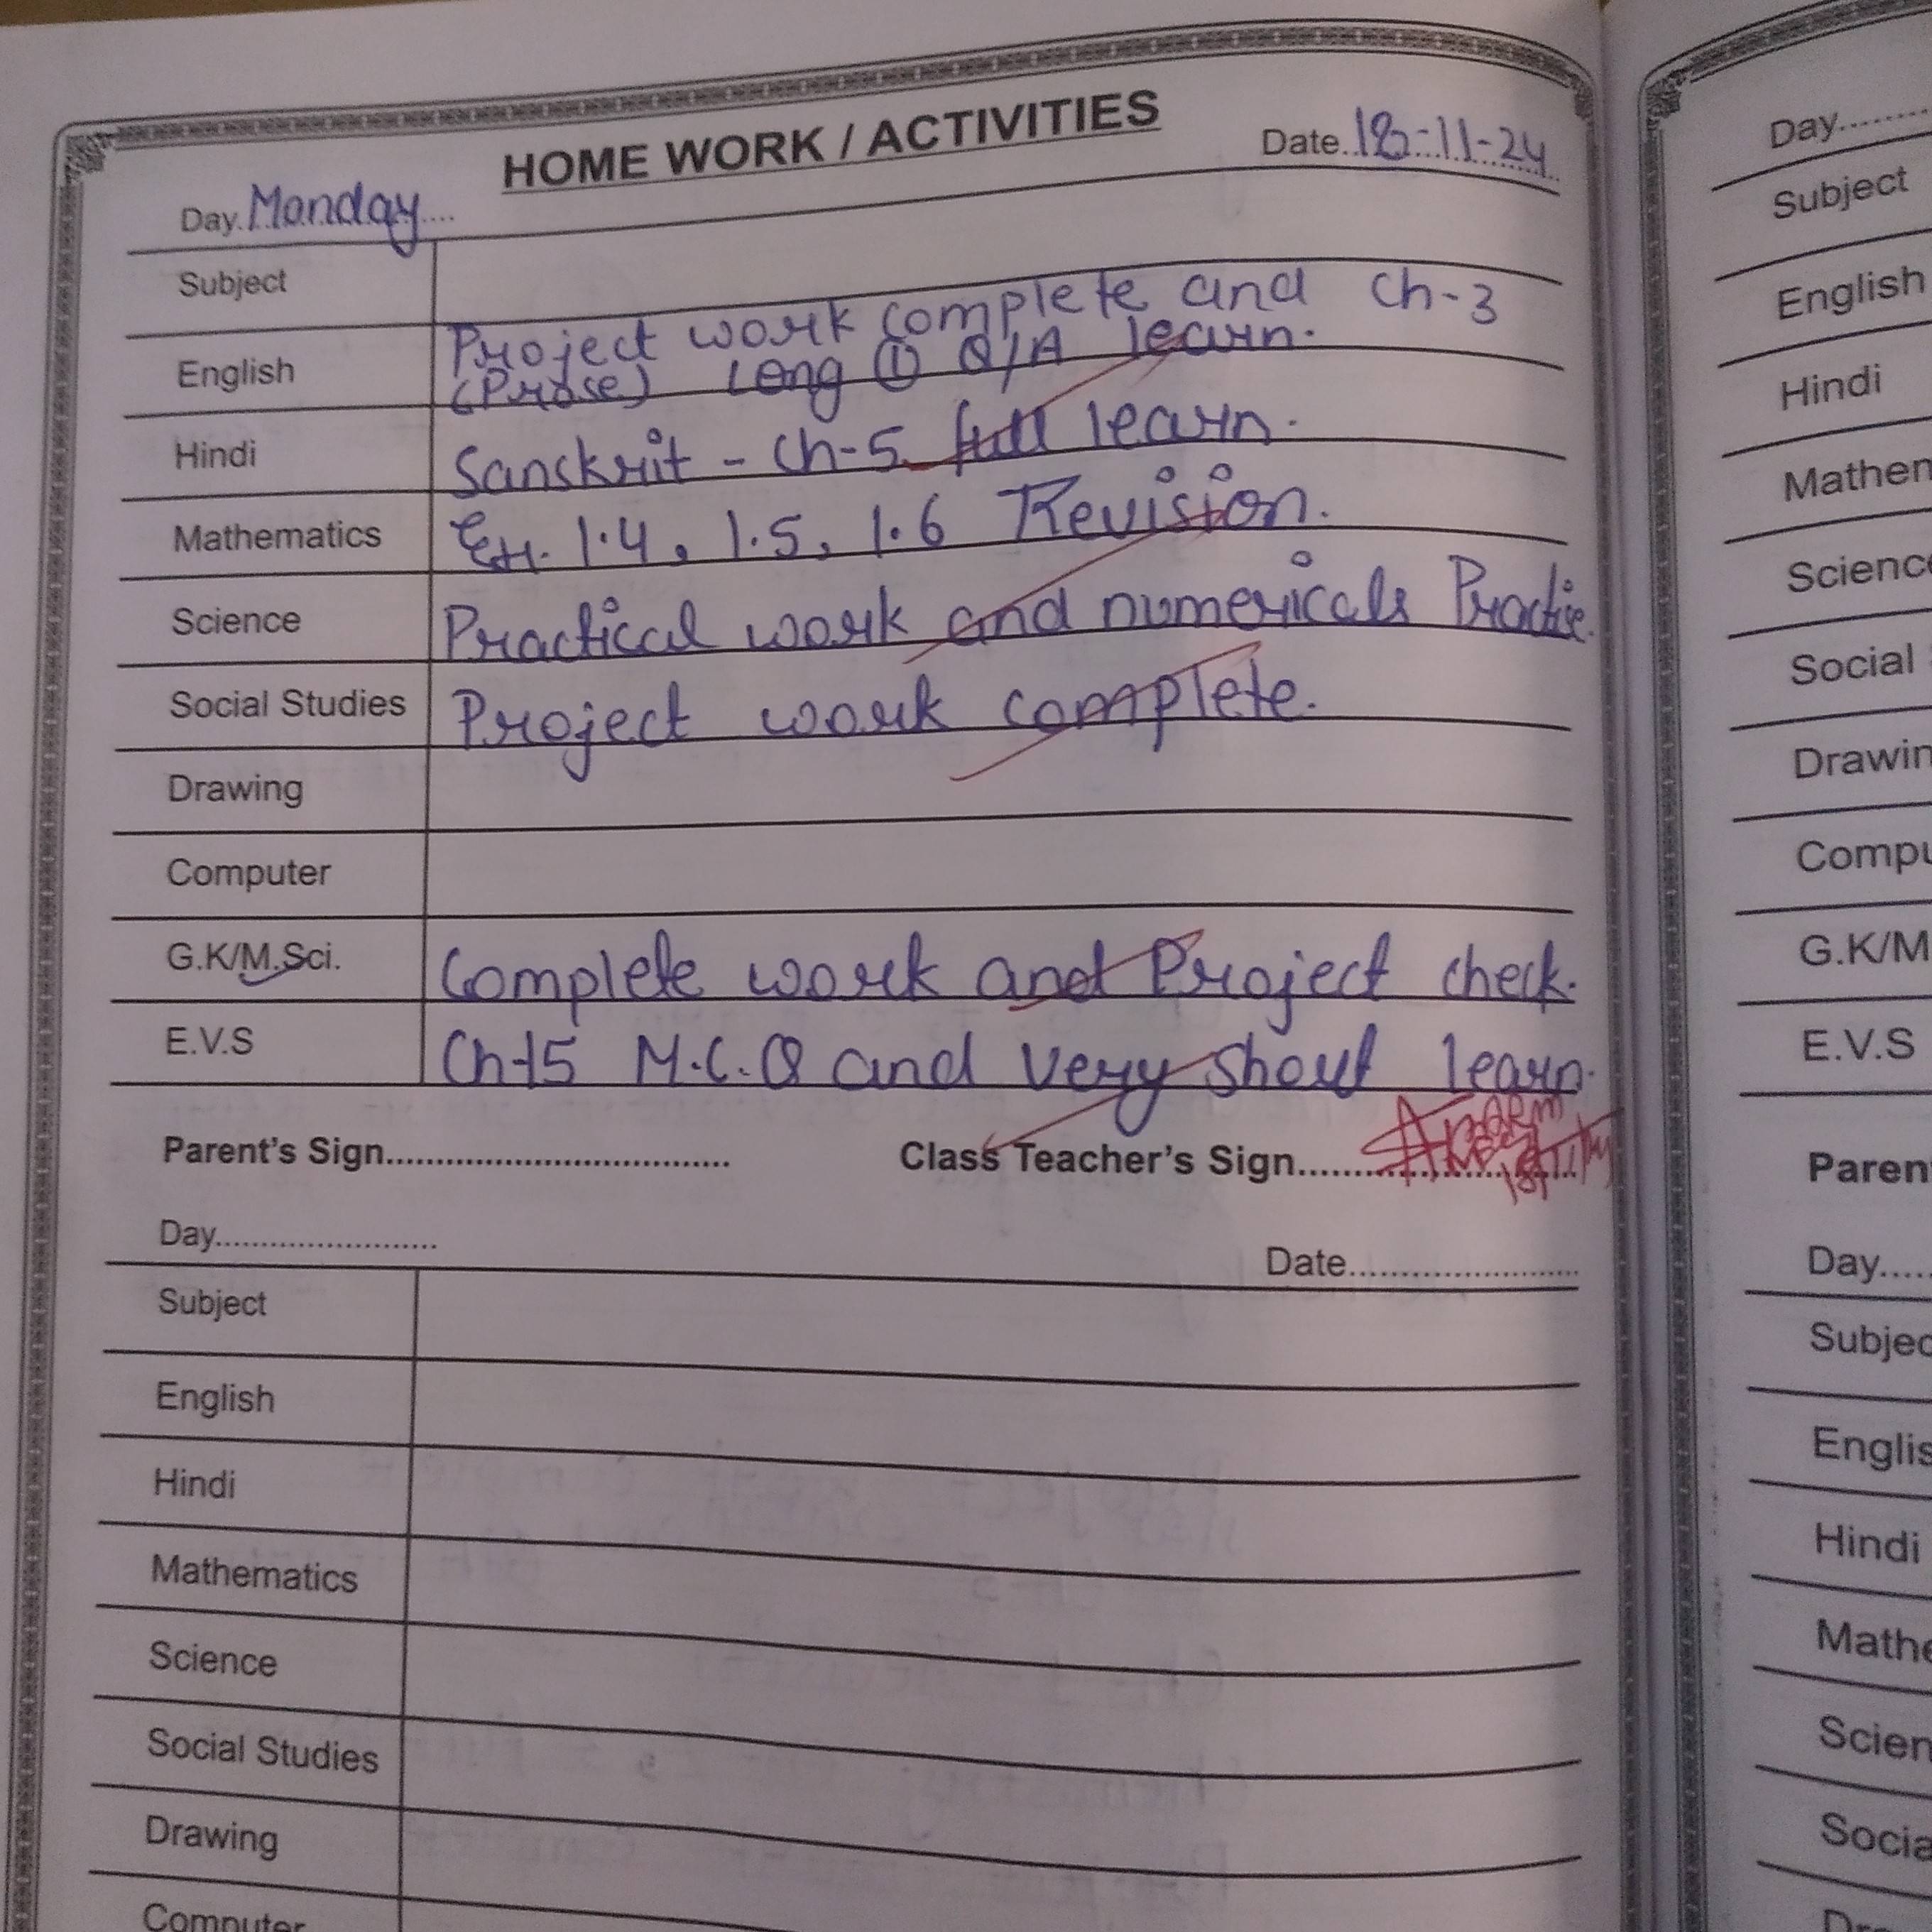 HOME WORK / ACTIVITIES
Day. Monday.... Date. 18-11-24
Subject
English Project work complete and Ch-3
(Prose) Long ① Q/A learn.
Hindi Sanskrit - Ch-5 full learn.
Mathematics Ex. 1.4, 1.5, 1.6 Revision.
Science Practical work and numericals Practice.
Social Studies Project work complete.
Drawing
Computer
G.K/M.Sci. Complete work and Project check.
E.V.S Ch-15 M.C.Q and Very short learn.
Parent's Sign.................... Class Teacher's Sign....................
Day.................... Date....................
Subject
English
Hindi
Mathematics
Science
Social Studies
Drawing
Computer
Day........
Subject
English
Hindi
Mathem
Science
Social
Drawin
Compu
G.K/M
E.V.S
Paren
Day.....
Subjec
Englis
Hindi
Mathe
Scien
Socia